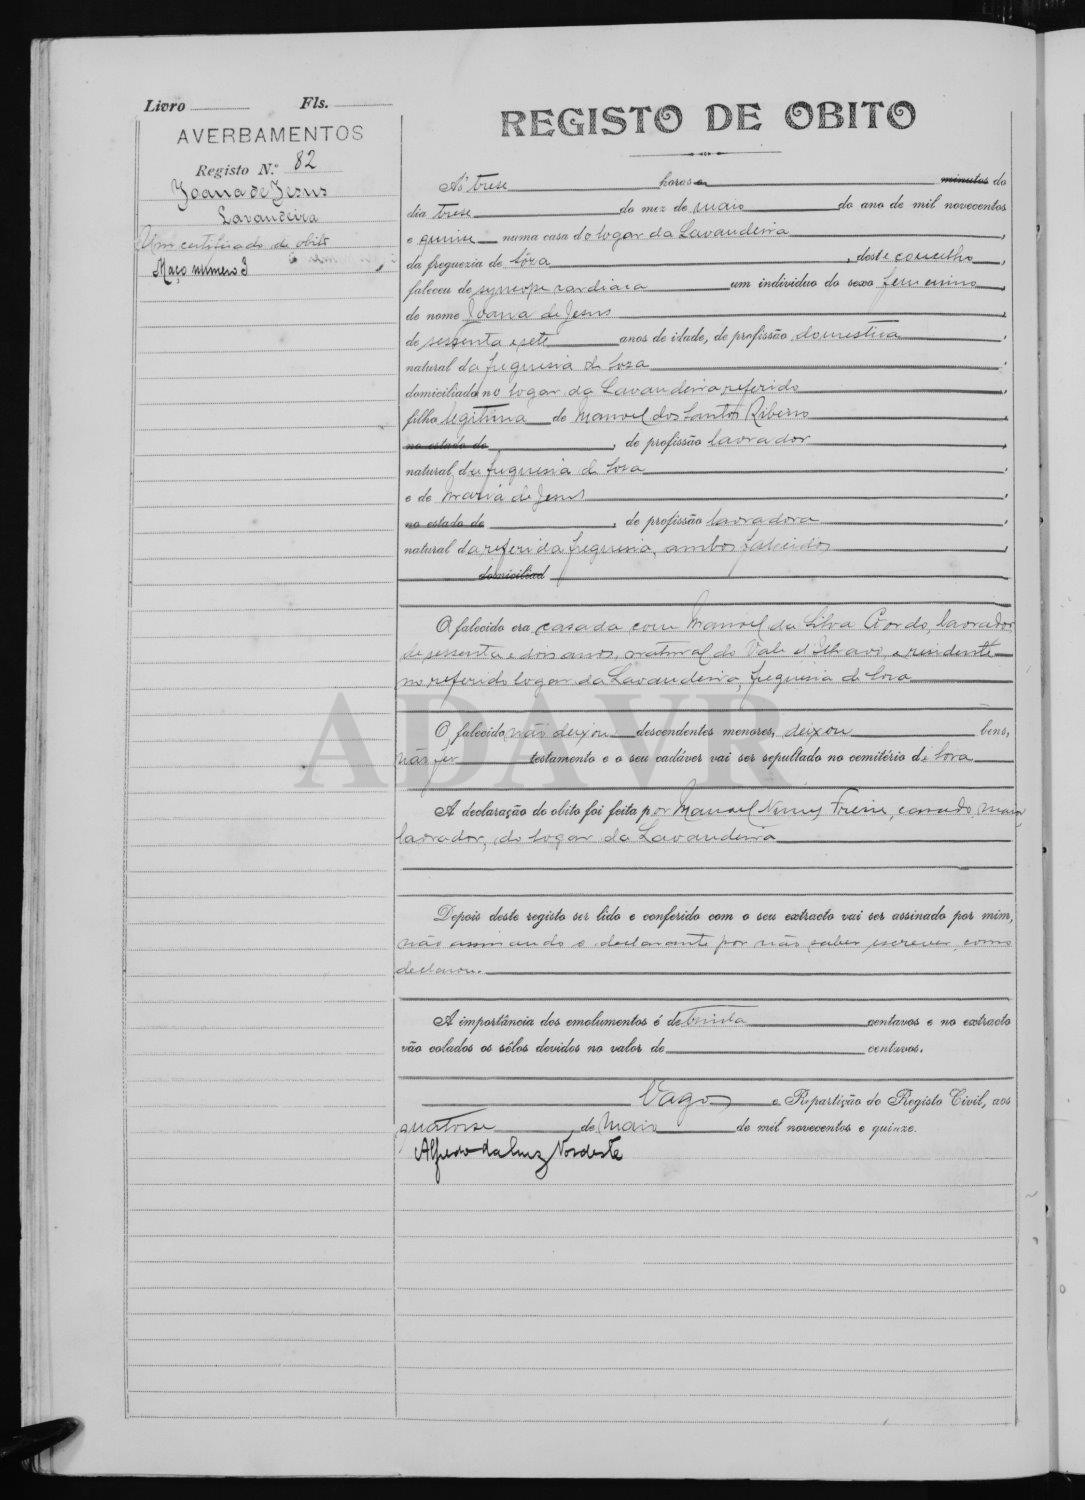 Livro Fls.
AVERBAMENTOS
Registo N.º 82
Joana de Jesus
Lavandeira
Um certificado de obito
Maço numero 3
REGISTO DE OBITO
Ás trese horas e minutos do
dia trese do mez de maio do ano de mil novecentos
e quinse numa casa do logar da Lavandeira,
da freguezia de Sôza, deste concelho,
faleceu de syncope cardiaca um individuo do sexo femenino,
de nome Joana de Jesus,
de sessenta e sete anos de idade, de profissão domestica,
natural da freguesia de Soza,
domiciliada no logar da Lavandeira referido,
filha legitima de Manoel dos Santos Ribeiro,
no estado de , de profissão lavrador,
natural da freguesia de Soza,
e de Maria de Jesus,
no estado de , de profissão lavradora,
natural da referida freguesia, ambos falecidos,
domiciliad
O falecido era casada com Manoel da Silva Gordo, lavrador
de sessenta e dois anos, natural do Vale d'Ilhavo, e residente
no referido logar da Lavandeira, freguesia de Soza
O falecido não deixou descendentes menores, deixou bens,
não fez testamento e o seu cadáver vai ser sepultado no cemitério de Soza
A declaração de obito foi feita por Manoel Nunes Freire, casado, maior,
lavrador, do logar da Lavandeira
Depois deste registo ser lido e conferido com o seu extracto vai ser assinado por mim,
não assinando o declarante por não saber escrever, como
declarou.
A importância dos emolumentos é de trinta centavos e no extracto
vão colados os sêlos devidos no valor de centavos.
Vagos e Repartição do Registo Civil, aos
quatorse de Maio de mil novecentos e quinze.
Alfredo da Luz Nordeste
ADAVR